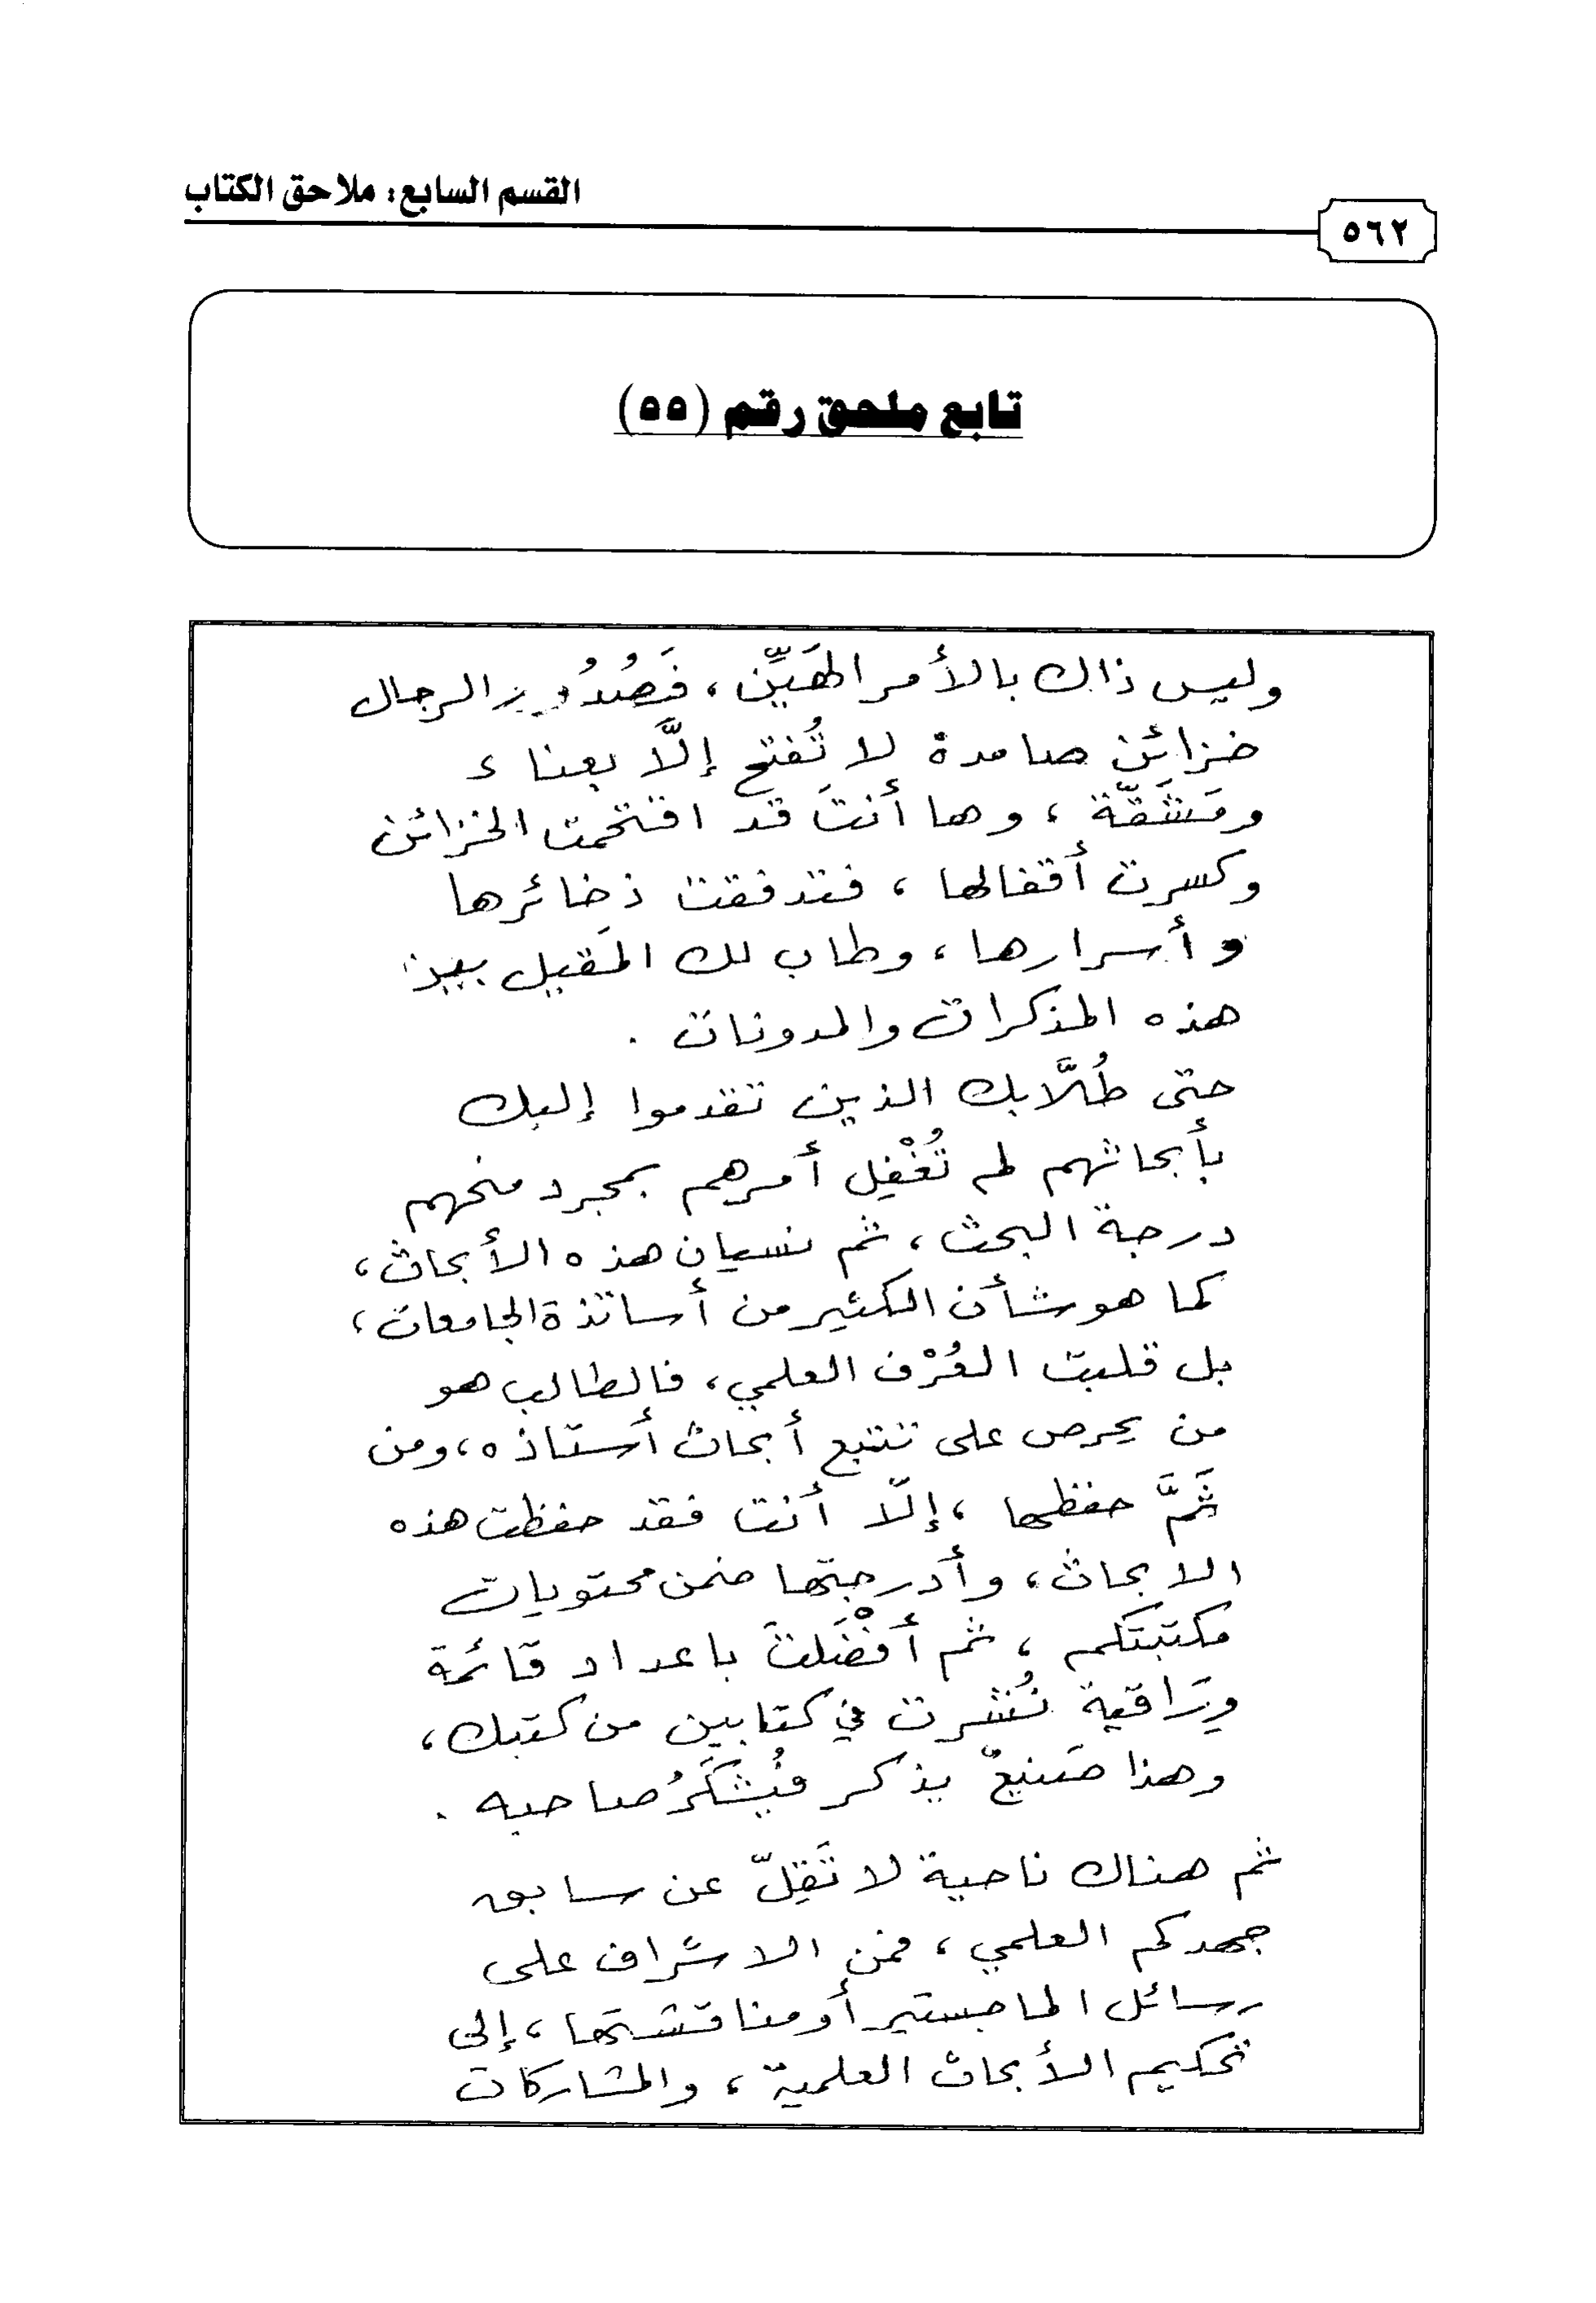 القسم السابع: ملاحق الكتاب
٥٦٢
تابع ملحق رقم (٥٥)
وليس ذاك بالأمر الهَيِّن، فَصُدُور الرجال
خزائن صامدة لا تُفتح إلَّا بعناء
ومَشَقَّة، وها أنتَ قد اقتحمت الخزائن
وكسرت أقفالها، فتدفقت ذخائرها
وأسرارها، وطاب لك المَقيل بين
هذه المذكرات والمدونات.
حتى طُلَّابك الذين تقدموا إليك
بأبحاثهم لم تُغْفِل أمرهم بمجرد منحهم
درجة البحث، ثم نسيان هذه الأبحاث،
كما هو شأن الكثير من أساتذة الجامعات،
بل قلبت العُرْف العلمي، فالطالب هو
من يحرص على تتبع أبحاث أستاذه، ومن
ثَمَّ حفظها، إلّا أنت فقد حفظت هذه
الابحاث، وأدرجتها ضمن محتويات
مكتبتكم، ثم أفْضَلتَ باعداد قائمة
وِرَاقية نُشرت في كتابين من كتبك،
وهذا صَنيعٌ يذكر فيُشكَرُ صاحبه.
ثم هناك ناحية لا تَقِلّ عن سابق
جهدكم العلمي، فمن الاشراف على
رسائل الماجستير أو مناقشتها، إلى
تحكيم الأبحاث العلمية، والمشاركات